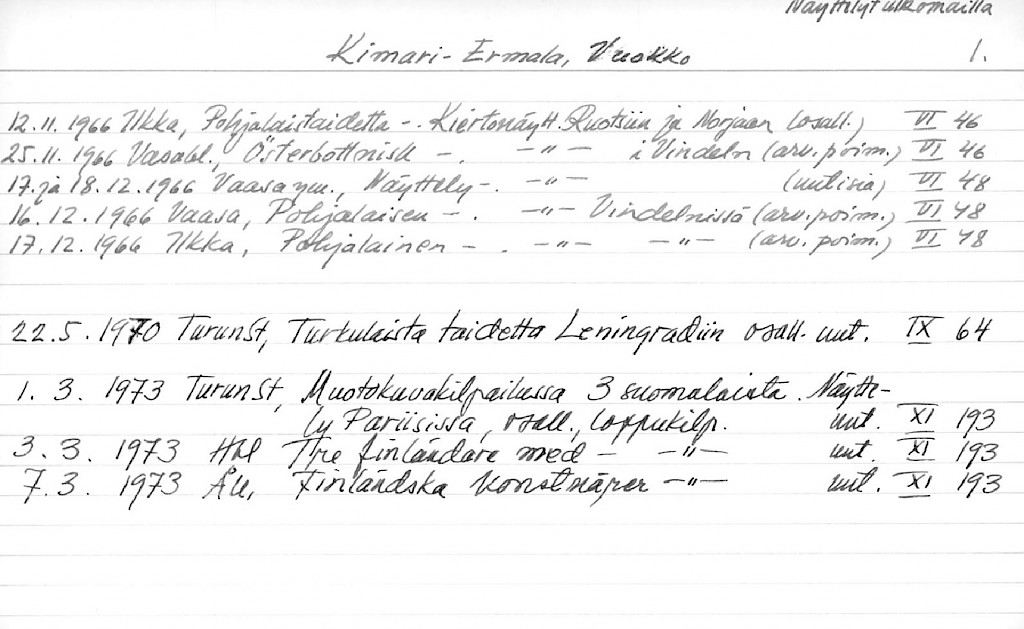 Näyttelyt ulkomailla
Kimari-Ermala, Vuokko 1.
12.11.1966 Ilkka, Pohjalaistaidetta -. Kiertonäytt. Ruotsiin ja Norjaan (osall.) VI 46
25.11.1966 Vasabl., Österbottnisk -. -"- i Vindeln (arv.poim.) VI 46
17. ja 18.12.1966 Vaasa ym., Näyttely-. -"- (uutisia) VI 48
16.12.1966 Vaasa, Pohjalaisen -. -"- Vindelnissä (arv.poim.) VI 48
17.12.1966 Ilkka, Pohjalainen -. -"- -"- (arv. poim.) VI 48
22.5.1970 TurunSt, Turkulaista taidetta Leningradiin osall. uut. IX 64
1. 3. 1973 TurunSt, Muotokuvakilpailussa 3 suomalaista. Näytte-
ly Pariisissa, osall., loppukilp. uut. XI 193
3. 3. 1973 Hbl Tre finländare med - -"- uut. XI 193
7.3. 1973 ÅU, Finländska konstnärer -"- uut. XI 193